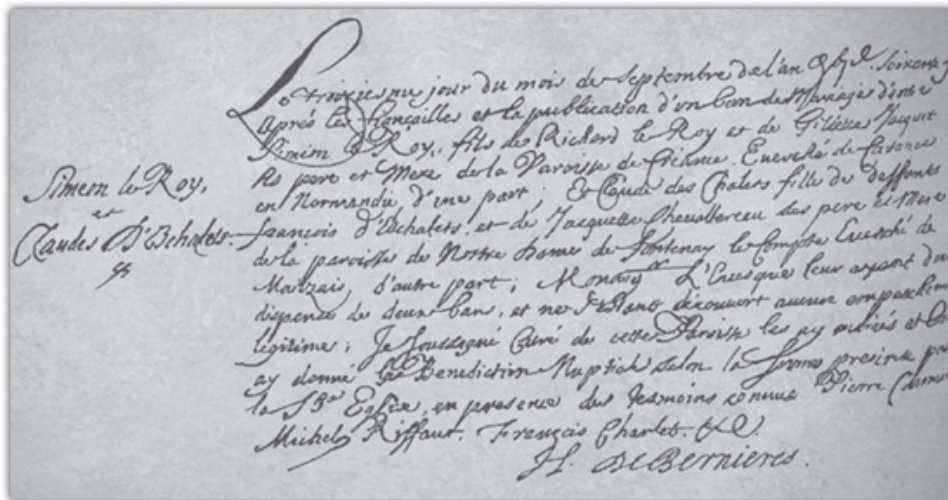 Simeon le Roy,
et
Claudes D'Echalets.
Le troisiesme jour du mois de Septembre de l'an
Aprés les fiançailles et la publication d'un ban de Mariage d'entre
Simeon le Roy, fils de Richard le Roy et de Gillette Jacquet
ses pere et Mere de la Paroisse de
en Normandie, d'une part; Et Claude des Chalets fille de deffunts
françois D'Echalets, et de Jacquette Chevallereau ses pere et Mere
de la paroisse de Nostre Dame de fontenay le Compte Evesché de
d'autre part; L'Evesque leur ayant
dispence de deux bans, et ne s'estant découvert aucun empeschem
legitime; Je soussigné Curé de cette Paroisse les ay mariés et
ay donné la Benediction Nuptiale selon la forme prescrite par
la Ste Eglise, en presence des tesmoins connus Pierre
Michel Riffaut. François Charlet. &c.
H. De Bernieres.